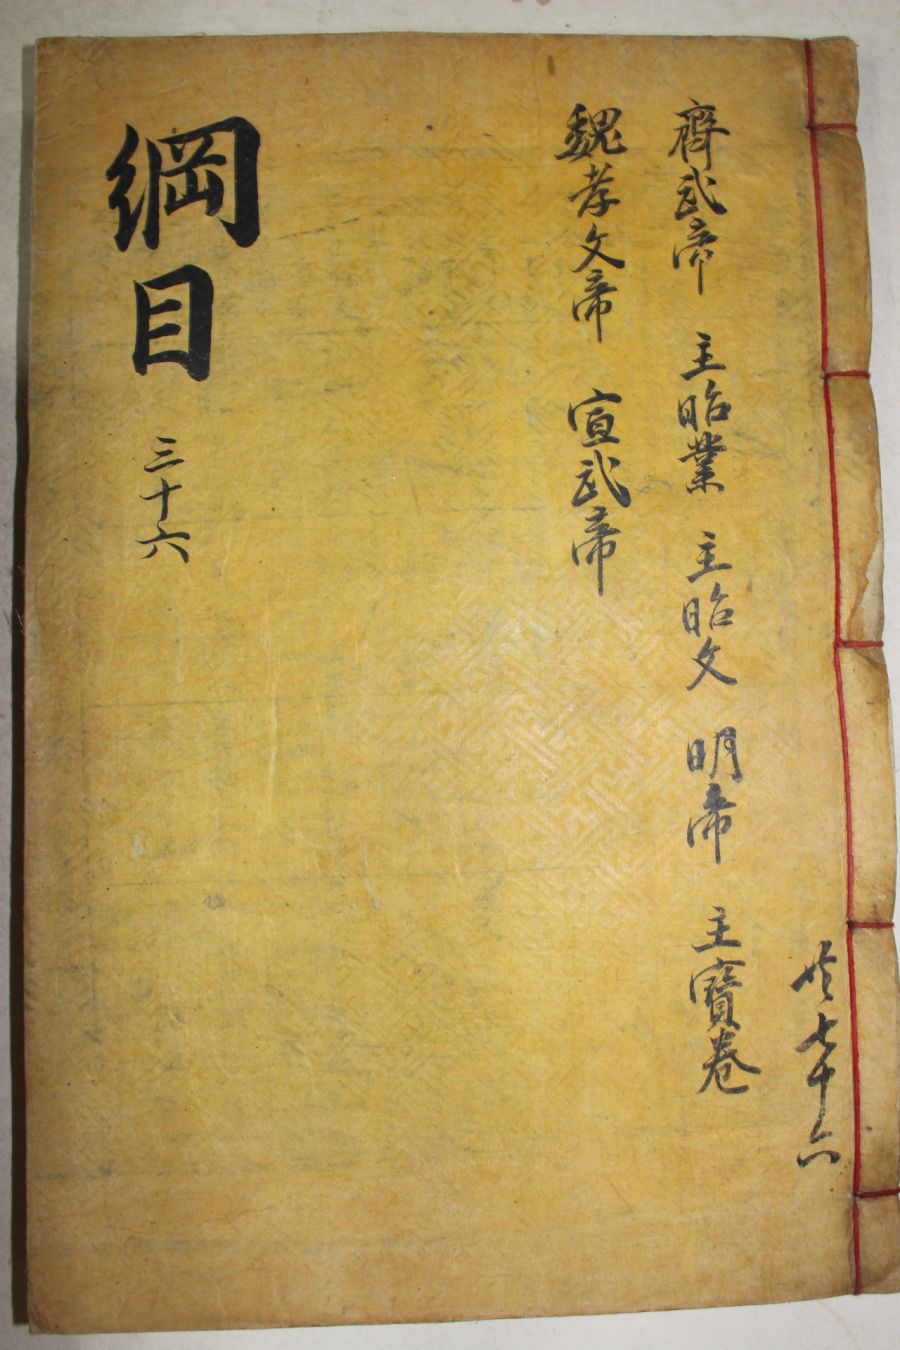 共七十六
齊武帝 主昭業 主昭文 明帝 主寶卷
魏孝文帝 宣武帝
綱目 三十六